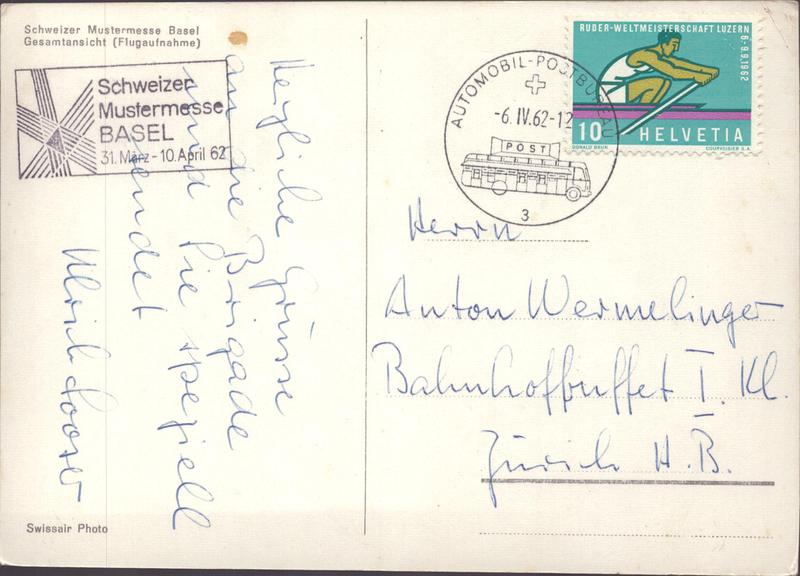 Schweizer Mustermesse Basel
Gesamtansicht (Flugaufnahme)
Schweizer
Mustermesse
BASEL
31. März - 10. April 62
Herzliche Grüsse
an die Brigade
und Sie speziell
sendet
Ulrich Looser
Swissair Photo
AUTOMOBIL-POSTBUREAU
-6.IV.62-12
POST
3
RUDER-WELTMEISTERSCHAFT LUZERN
6.-9.9.1962
10 HELVETIA
DONALD BRUN COURVOISIER S.A.
Herrn
Anton Wermelinger
Bahnhofbuffet I. Kl.
Zürich H.B.